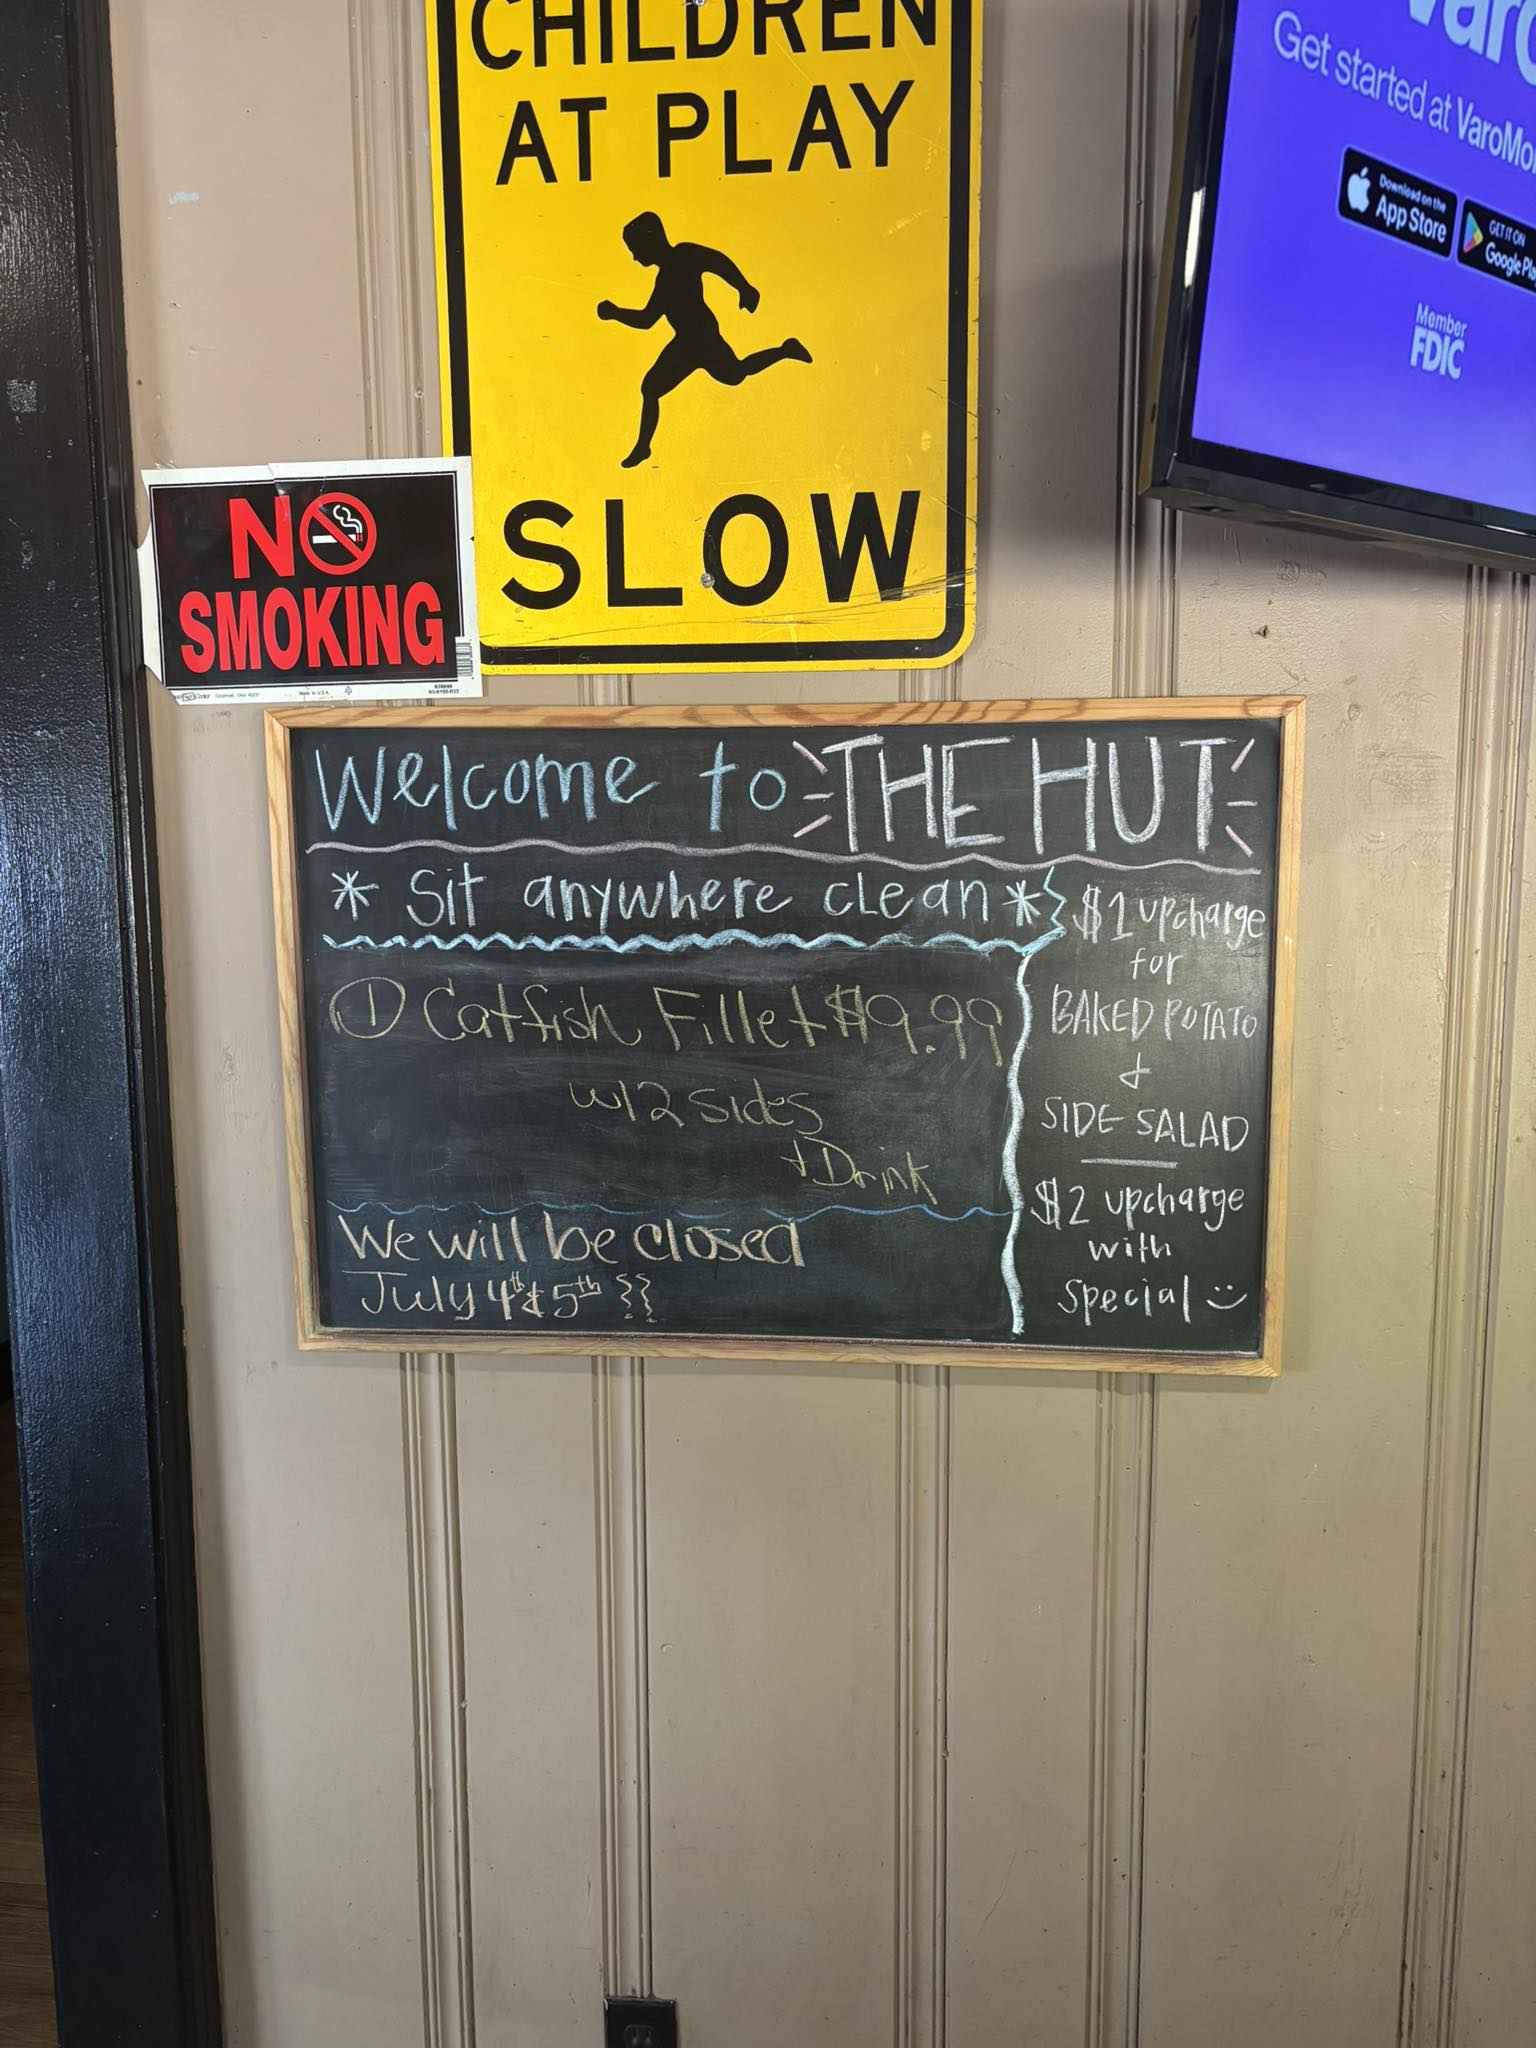 CHILDREN
AT PLAY
SLOW
Varo
Get started at VaroMo
Download on the
App Store
GET IT ON
Google Pla
Member
FDIC
NO
SMOKING
Made in U.S.A.
Welcome to THE HUT
* Sit anywhere clean *
① Catfish Fillet $9.99
w/2 sides
+ Drink
We will be closed
July 4th & 5th
$1 upcharge
for
BAKED POTATO
&
SIDE SALAD
$2 upcharge
with
special :)